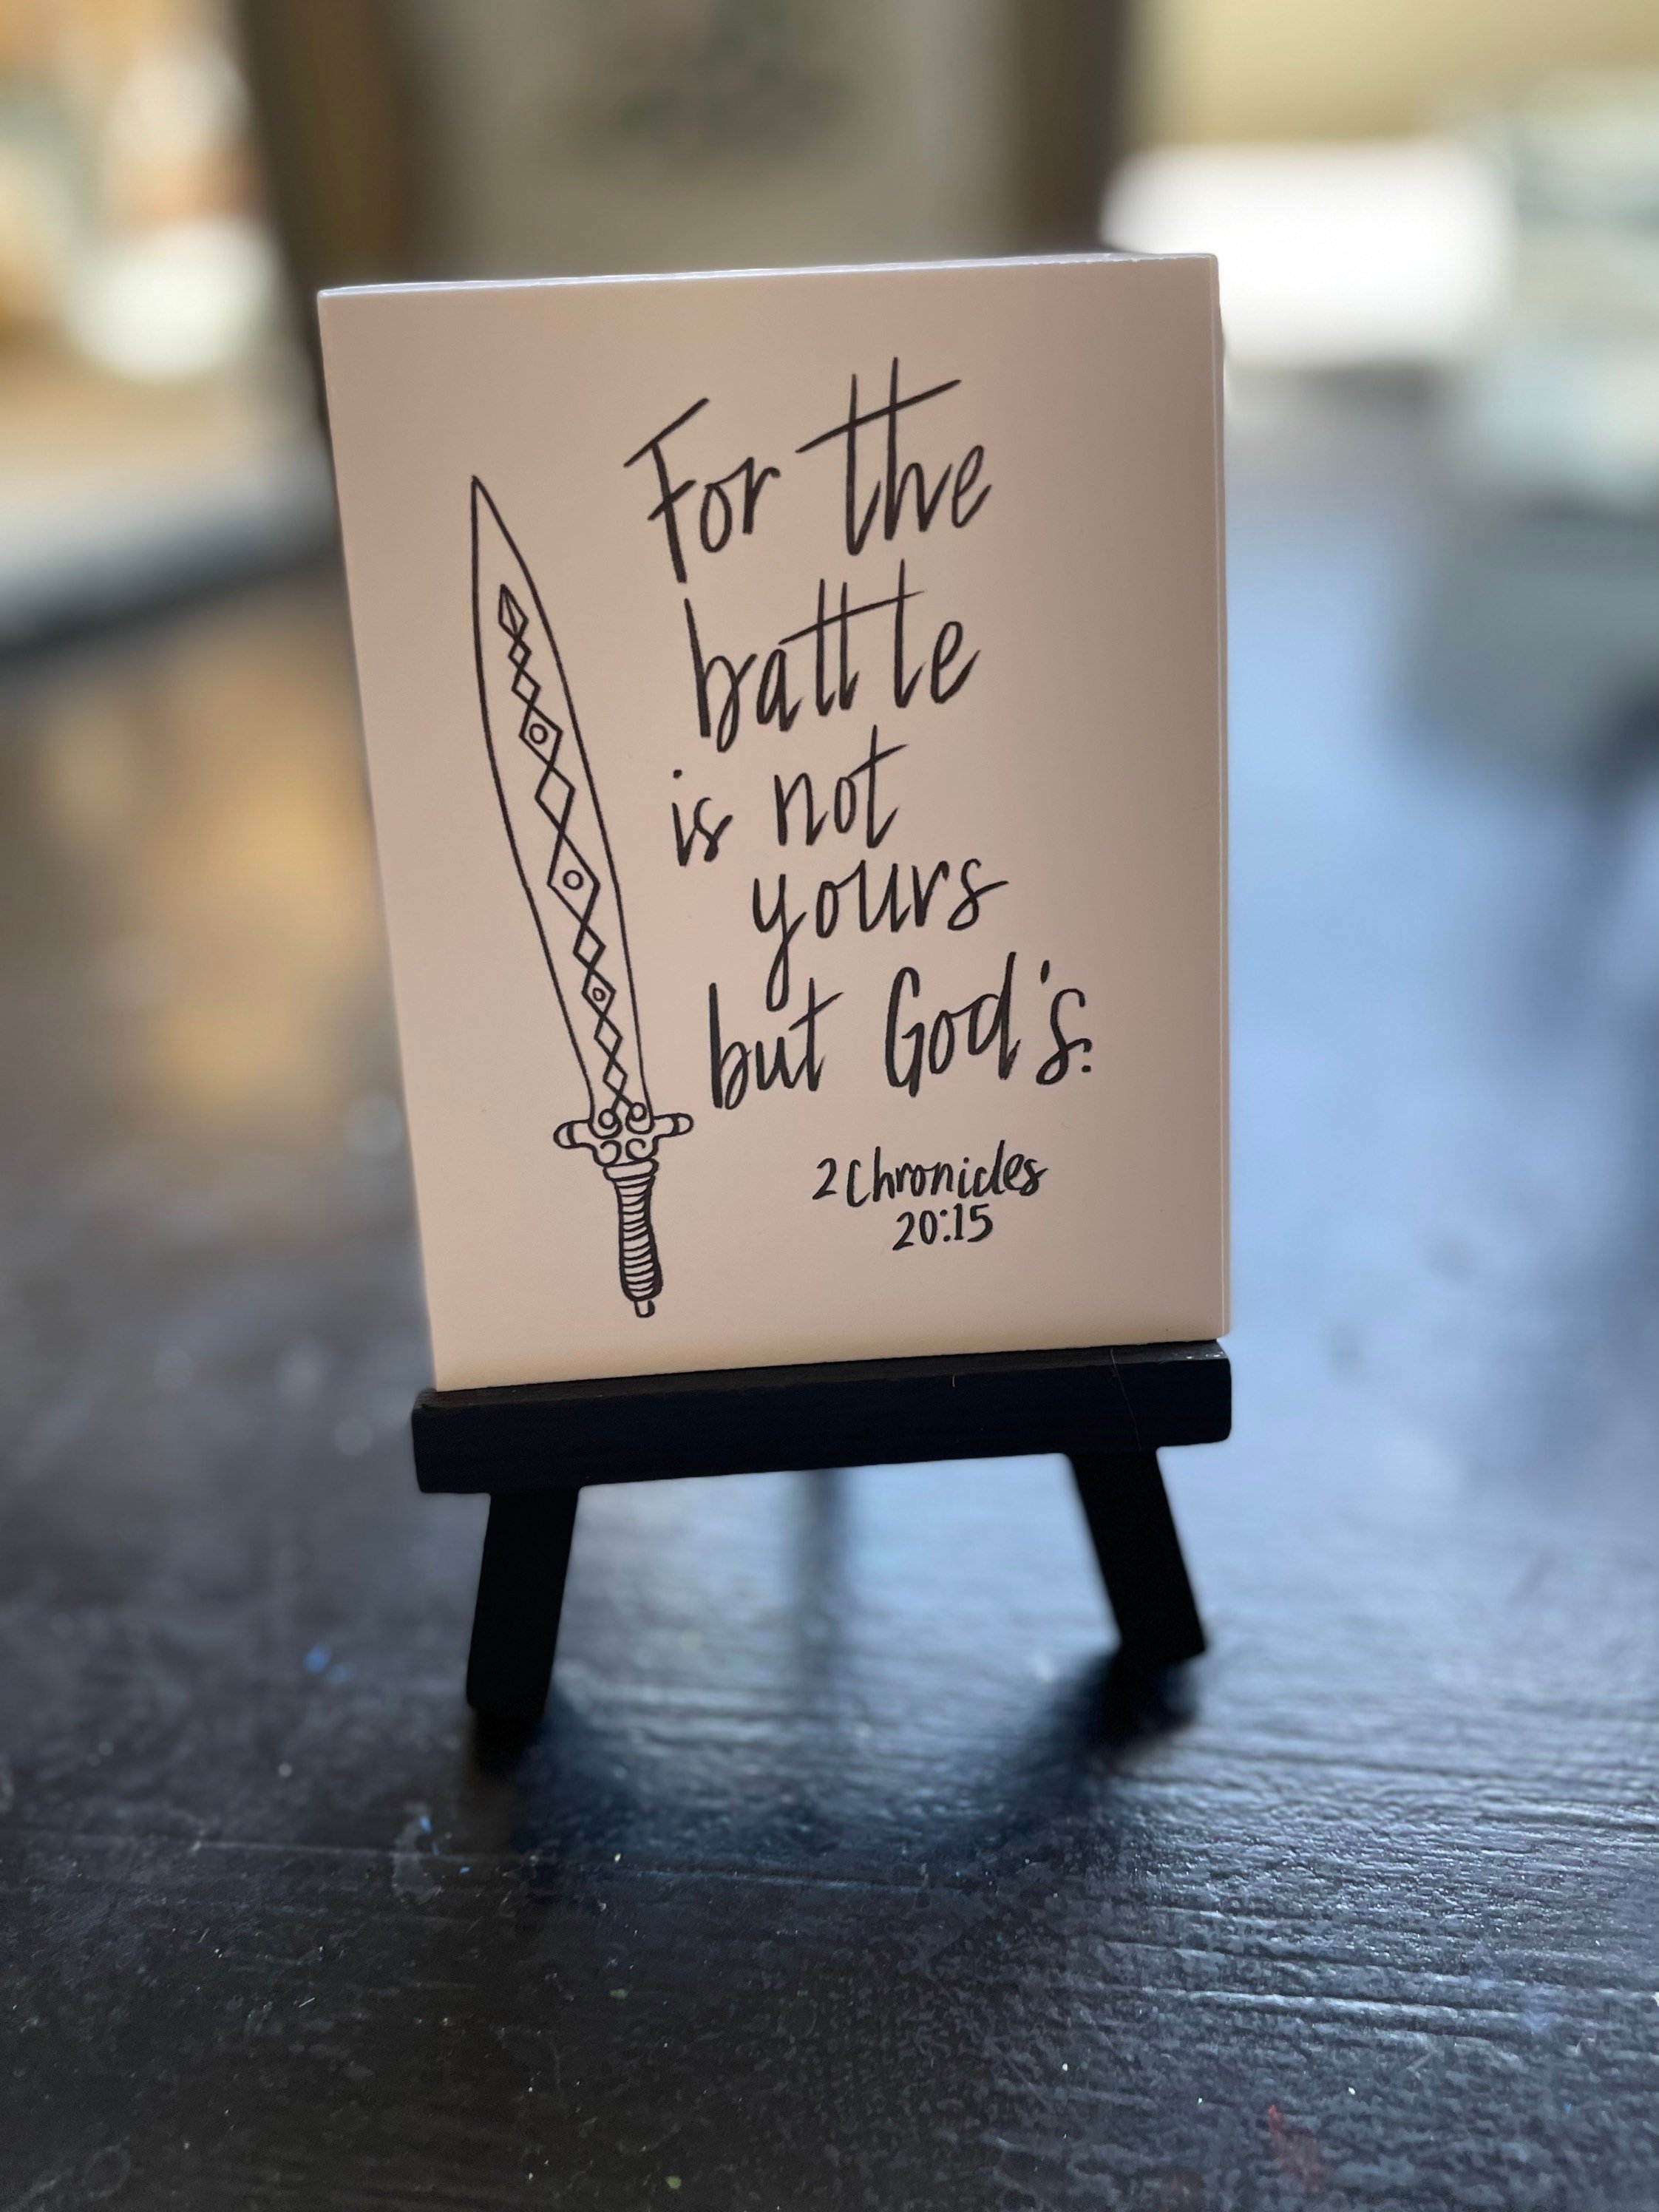 For the
battle
is not
yours
but God's.
2 Chronicles
20:15